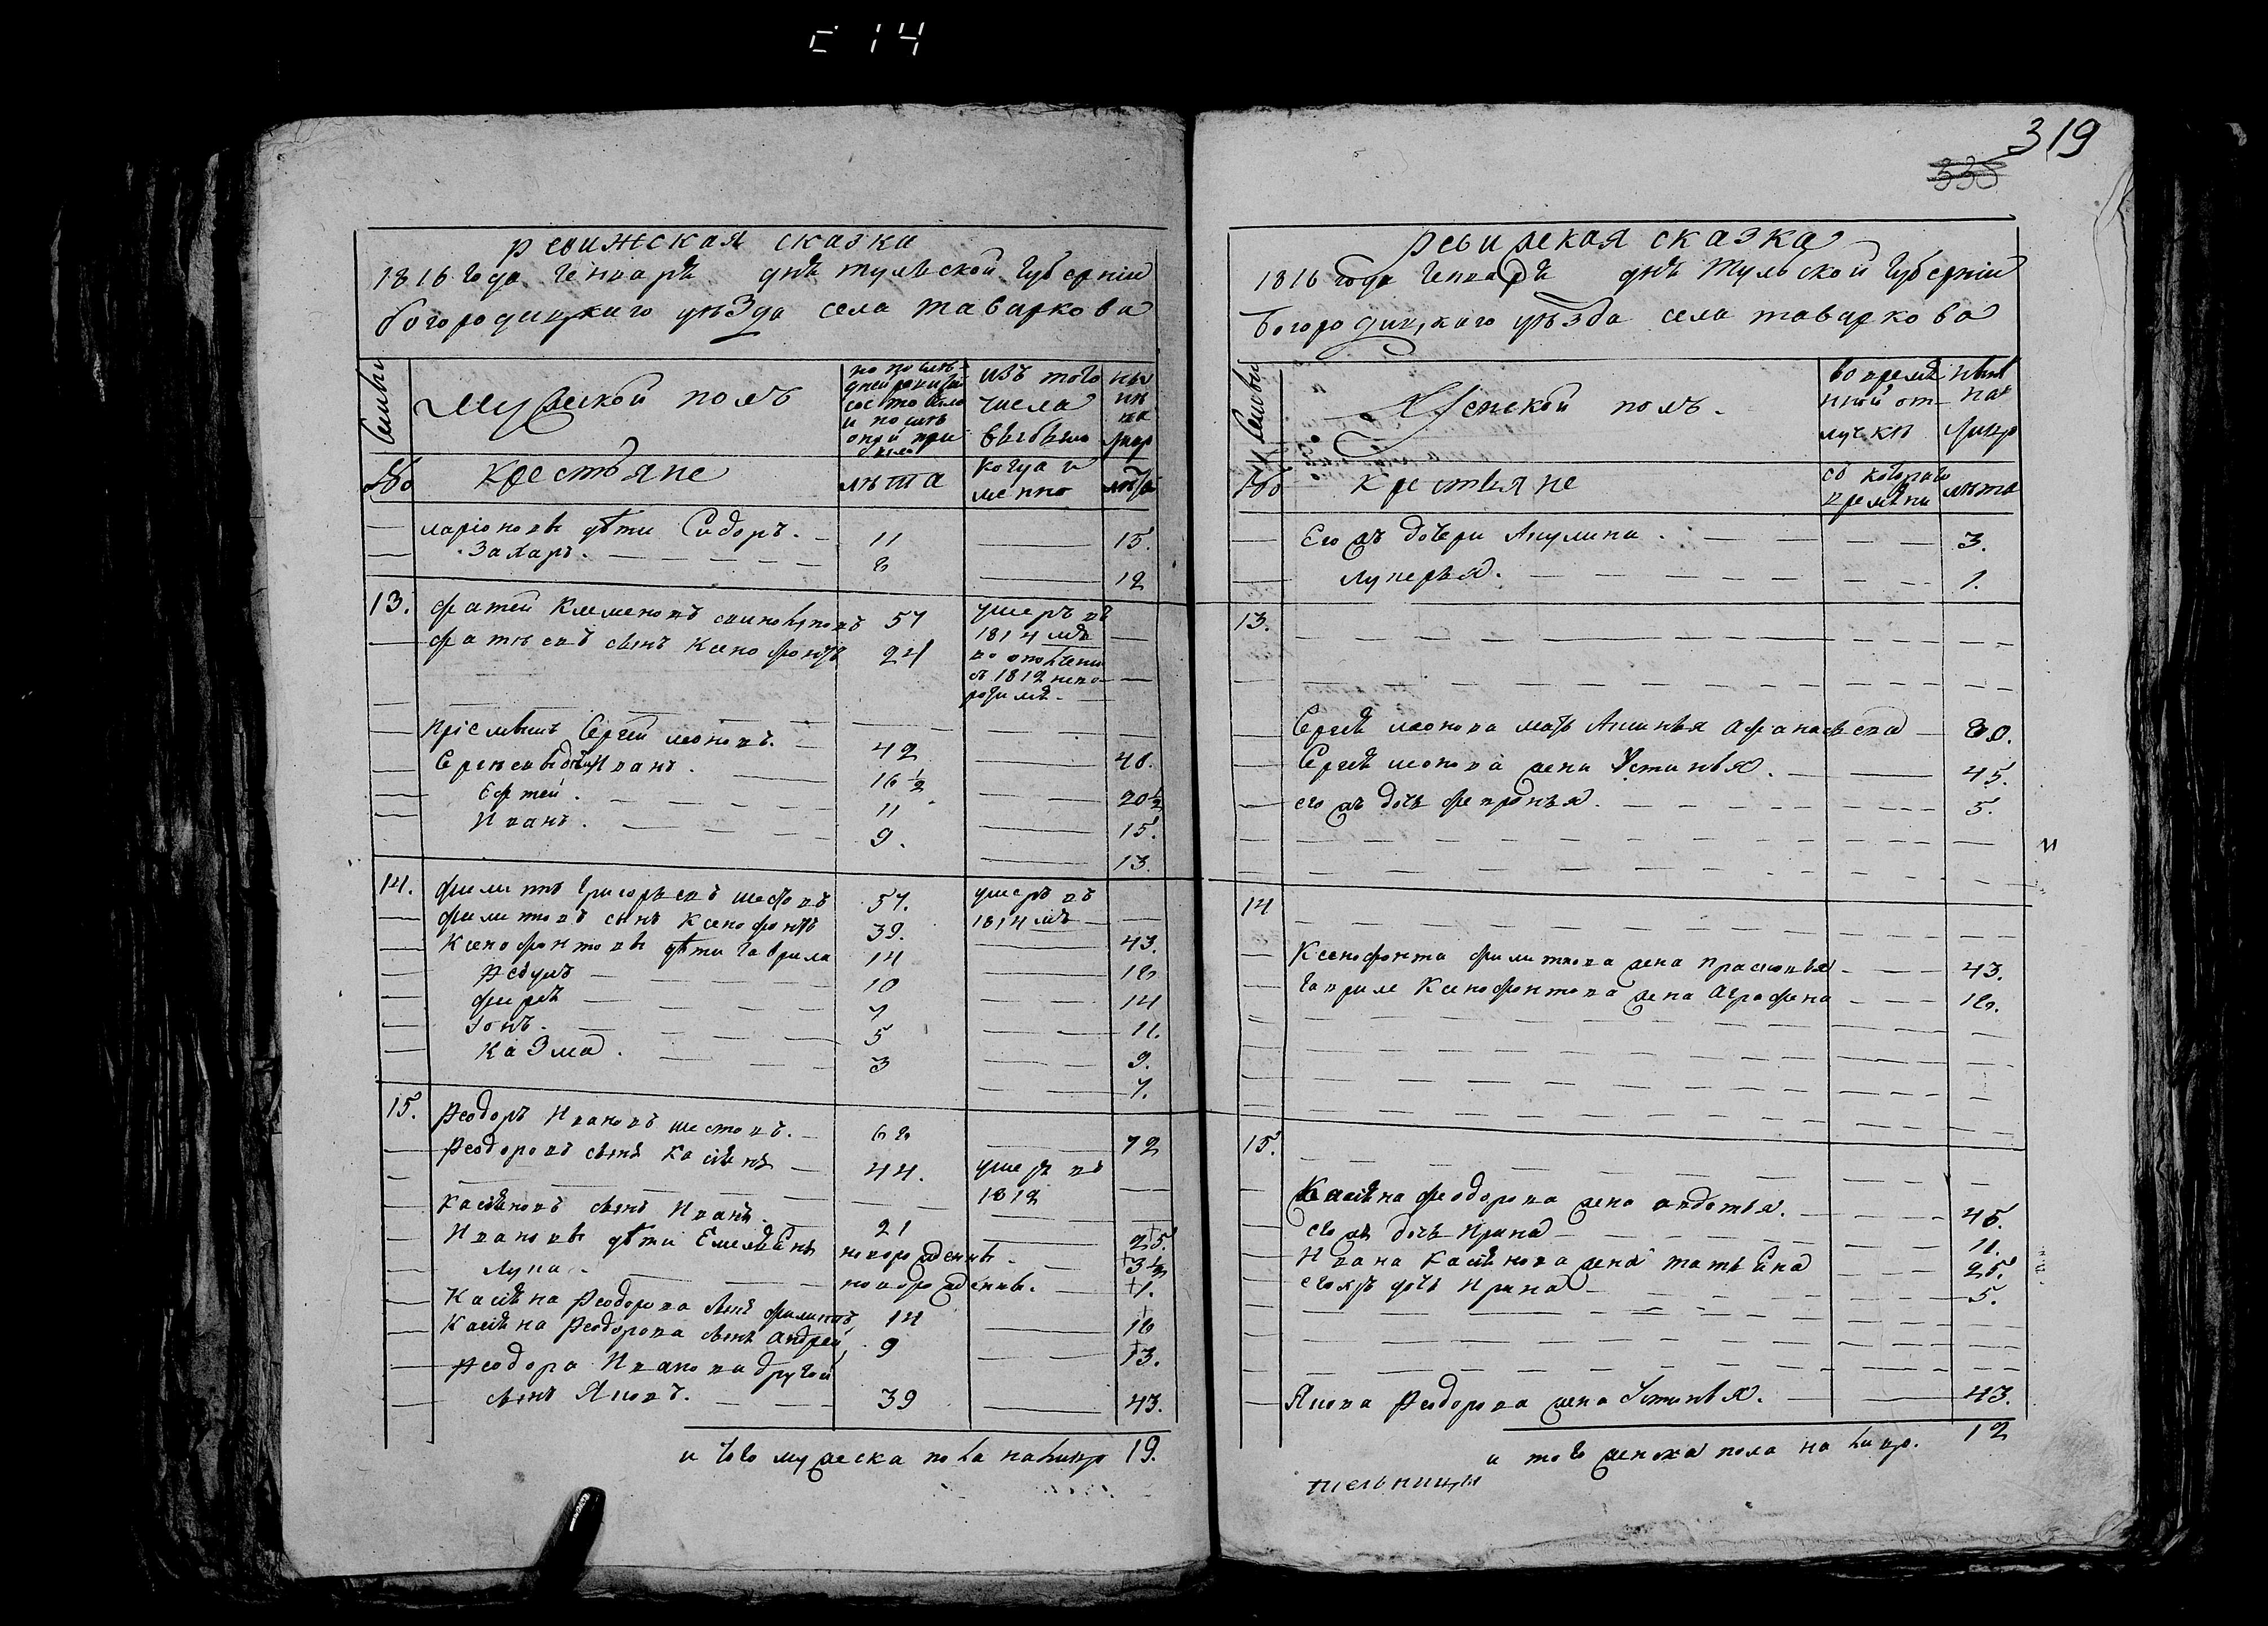 с 14
319
338
ревижская сказка
1816 года генваря дня тульской губернии
богородицкаго уѣзда села таваркова
Семьи
Мужеской полъ
по послѣдней ревизіи состояло и послѣ оной прибыло
изъ того числа выбыло
нынѣ на лицо
№
крестьяне
лѣта
когда именно
лѣта
ларіоновы дѣти Сидоръ. 11 15.
Захаръ. 8 12
13. фатей Клеменовъ 57 умеръ въ 1814 мъ
фатѣевъ сынъ Ксенофонтъ 24 во ополчении въ 1812
Пріемышъ Сергей леоновъ. 42 46.
Сергѣевы дѣти Иванъ. 16 ½ 20 ½
Ефтей. 11 15.
Иванъ. 9. 13.
14. филиппъ Григорьевъ шестовъ 57. умеръ въ 1814 мъ
филиповъ сынъ Ксенофонтъ 39. 43.
Ксенофонтовы дѣти гаврила 14 18
Ѳедулъ 10 14
фирсъ 7 11.
Іонъ. 5 9.
Казма. 3 7.
15. Ѳеодоръ Ивановъ шестовъ. 68 72
Ѳеодоровъ сынъ Касьянъ 44. умеръ въ 1812
Касьяновъ сынъ Иванъ. 21 25.
Ивановы дѣти Емельянъ новорожденны. 3 ½
Лупа. новорожденны. 1.
Касьяна Ѳеодорова сынъ филиппъ, 14 18
Касьяна Ѳеодорова сынъ андрей, 9 13.
Ѳеодора Иванова другой
сынъ Яковъ. 39 43.
и того мужеска пола налицо 19.
Ревижская сказка
1816 года генваря дня Тульской губернии
Богородицкаго уѣзда села таваркова
Семьи
Женской полъ.
во временной отлучкѣ
нынѣ на лицо
№
крестьяне
съ котораго времени
лѣта
Его жъ дочери Акулина. 3.
Лукерья. 1.
13.
Сергѣя леонова мать Аксинья Афанасьева 80.
Сергѣя леонова жена Устинья. 45.
его жъ дочь февронья. 5.
14
Ксенофонта филиппова жена прасковья 43.
гаврилы Ксенофонтова жена Аграфена 18.
15.
Касьяна феодорова жена авдотья. 45.
его жъ дочь Ирина 11.
Ивана Касьянова жена татьяна 25.
его жъ дочь Ирина 5.
Якова Ѳеодорова жена Устинья. 43.
и того женска пола на лицо. 12